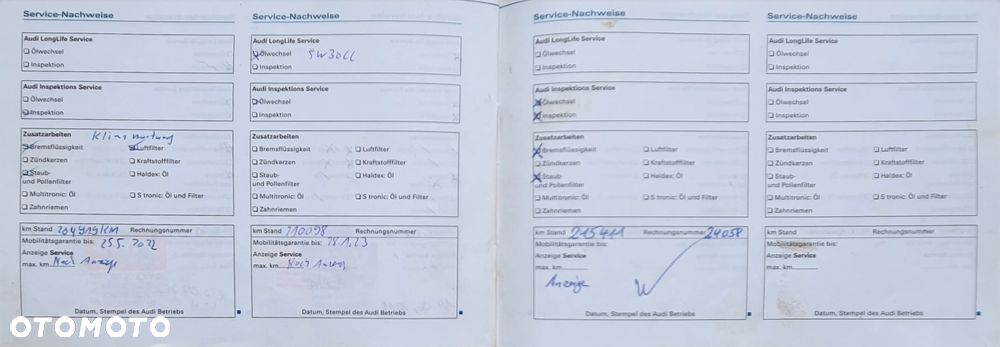 Service-Nachweise
Audi LongLife Service
Ölwechsel
Inspektion
Audi Inspektions Service
Ölwechsel
Inspektion
Zusatzarbeiten
Klima Wartung
Bremsflüssigkeit Luftfilter
Zündkerzen Kraftstofffilter
Staub- Haldex: Öl
und Pollenfilter
Multitronic: Öl S tronic: Öl und Filter
Zahnriemen
km Stand 204919KM Rechnungsnummer
Mobilitätsgarantie bis: 25.5. 2022
Anzeige Service
max. km Nach Anzeige
Datum, Stempel des Audi Betriebs
Service-Nachweise
Audi LongLife Service
Ölwechsel 5W30LL
Inspektion
Audi Inspektions Service
Ölwechsel
Inspektion
Zusatzarbeiten
Bremsflüssigkeit Luftfilter
Zündkerzen Kraftstofffilter
Staub- Haldex: Öl
und Pollenfilter
Multitronic: Öl S tronic: Öl und Filter
Zahnriemen
km Stand 210098 Rechnungsnummer
Mobilitätsgarantie bis: 18.1.23
Anzeige Service
max. km Nach Anzeige
Datum, Stempel des Audi Betriebs
Service-Nachweise
Audi LongLife Service
Ölwechsel
Inspektion
Audi Inspektions Service
Ölwechsel
Inspektion
Zusatzarbeiten
Bremsflüssigkeit Luftfilter
Zündkerzen Kraftstofffilter
Staub- Haldex: Öl
und Pollenfilter
Multitronic: Öl S tronic: Öl und Filter
Zahnriemen
km Stand 215411 Rechnungsnummer 24058
Mobilitätsgarantie bis:
Anzeige Service
max. km
Anzeige
Datum, Stempel des Audi Betriebs
Service-Nachweise
Audi LongLife Service
Ölwechsel
Inspektion
Audi Inspektions Service
Ölwechsel
Inspektion
Zusatzarbeiten
Bremsflüssigkeit Luftfilter
Zündkerzen Kraftstofffilter
Staub- Haldex: Öl
und Pollenfilter
Multitronic: Öl S tronic: Öl und Filter
Zahnriemen
km Stand Rechnungsnummer
Mobilitätsgarantie bis:
Anzeige Service
max. km
Datum, Stempel des Audi Betriebs
OTOMOTO